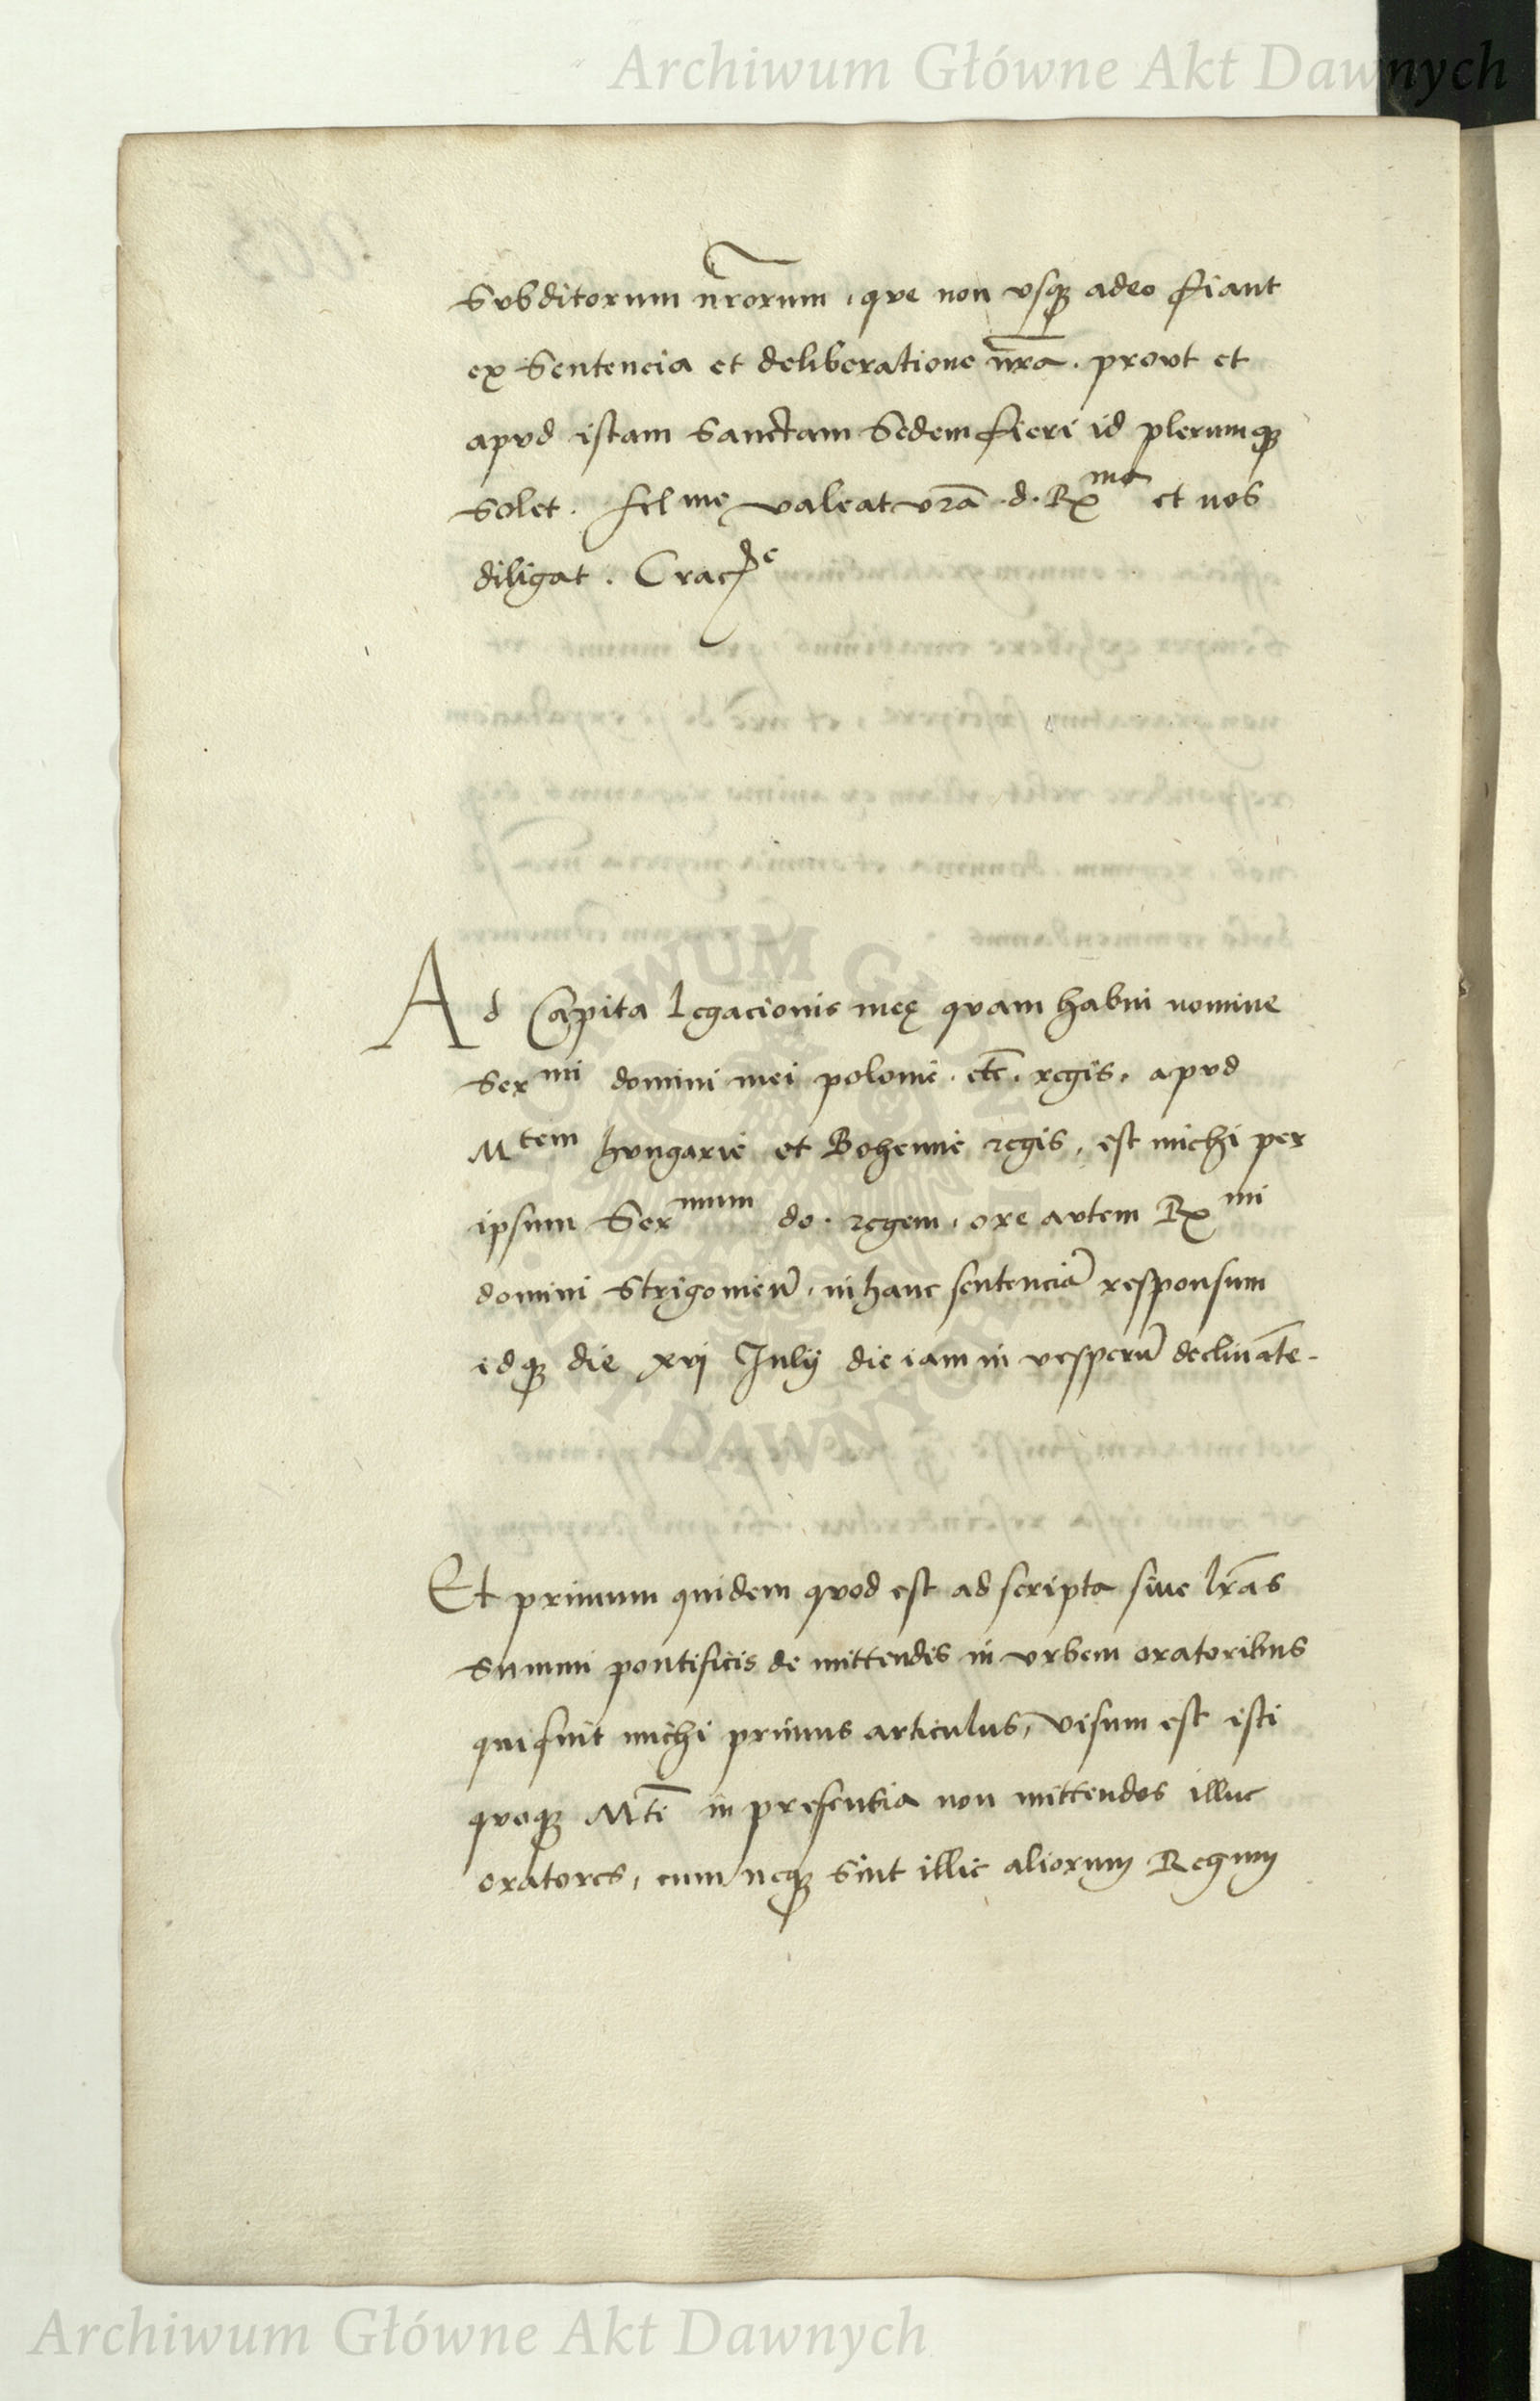 Archiwum Główne Akt Dawnych
Svbditorum nrorum, qve non vsq adeo fiant
ex Sentencia et deliberatione nra. provt et
apvd istam Sanctam Sedem fieri id plerumq
Solet. fel me valeat vra .d. Rma et nos
diligat. Crac
Ad Capita legacionis meę qvam habui nomine
Sermi domini mei polonie. etc. regis, apvd
Mtem hvngarie et Bohemie regis, est michi per
ipsum Sermum do. regem, ore avtem Rmi
domini Strigonien, in hanc sentencia responsum
idq die xvj Julij die iam in vesperu declinate.
Et primum quidem qvod est ad scripta sive lras
Summi pontificis de mittendis in vrbem oratoribus
qui fuit michi primus articulus, visum est isti
qvoq Mti in presentia non mittendos illuc
oratores, cum neq Sint illic aliorum Regum
ARCHIWUM GŁÓWNE AKT DAWNYCH
Archiwum Główne Akt Dawnych